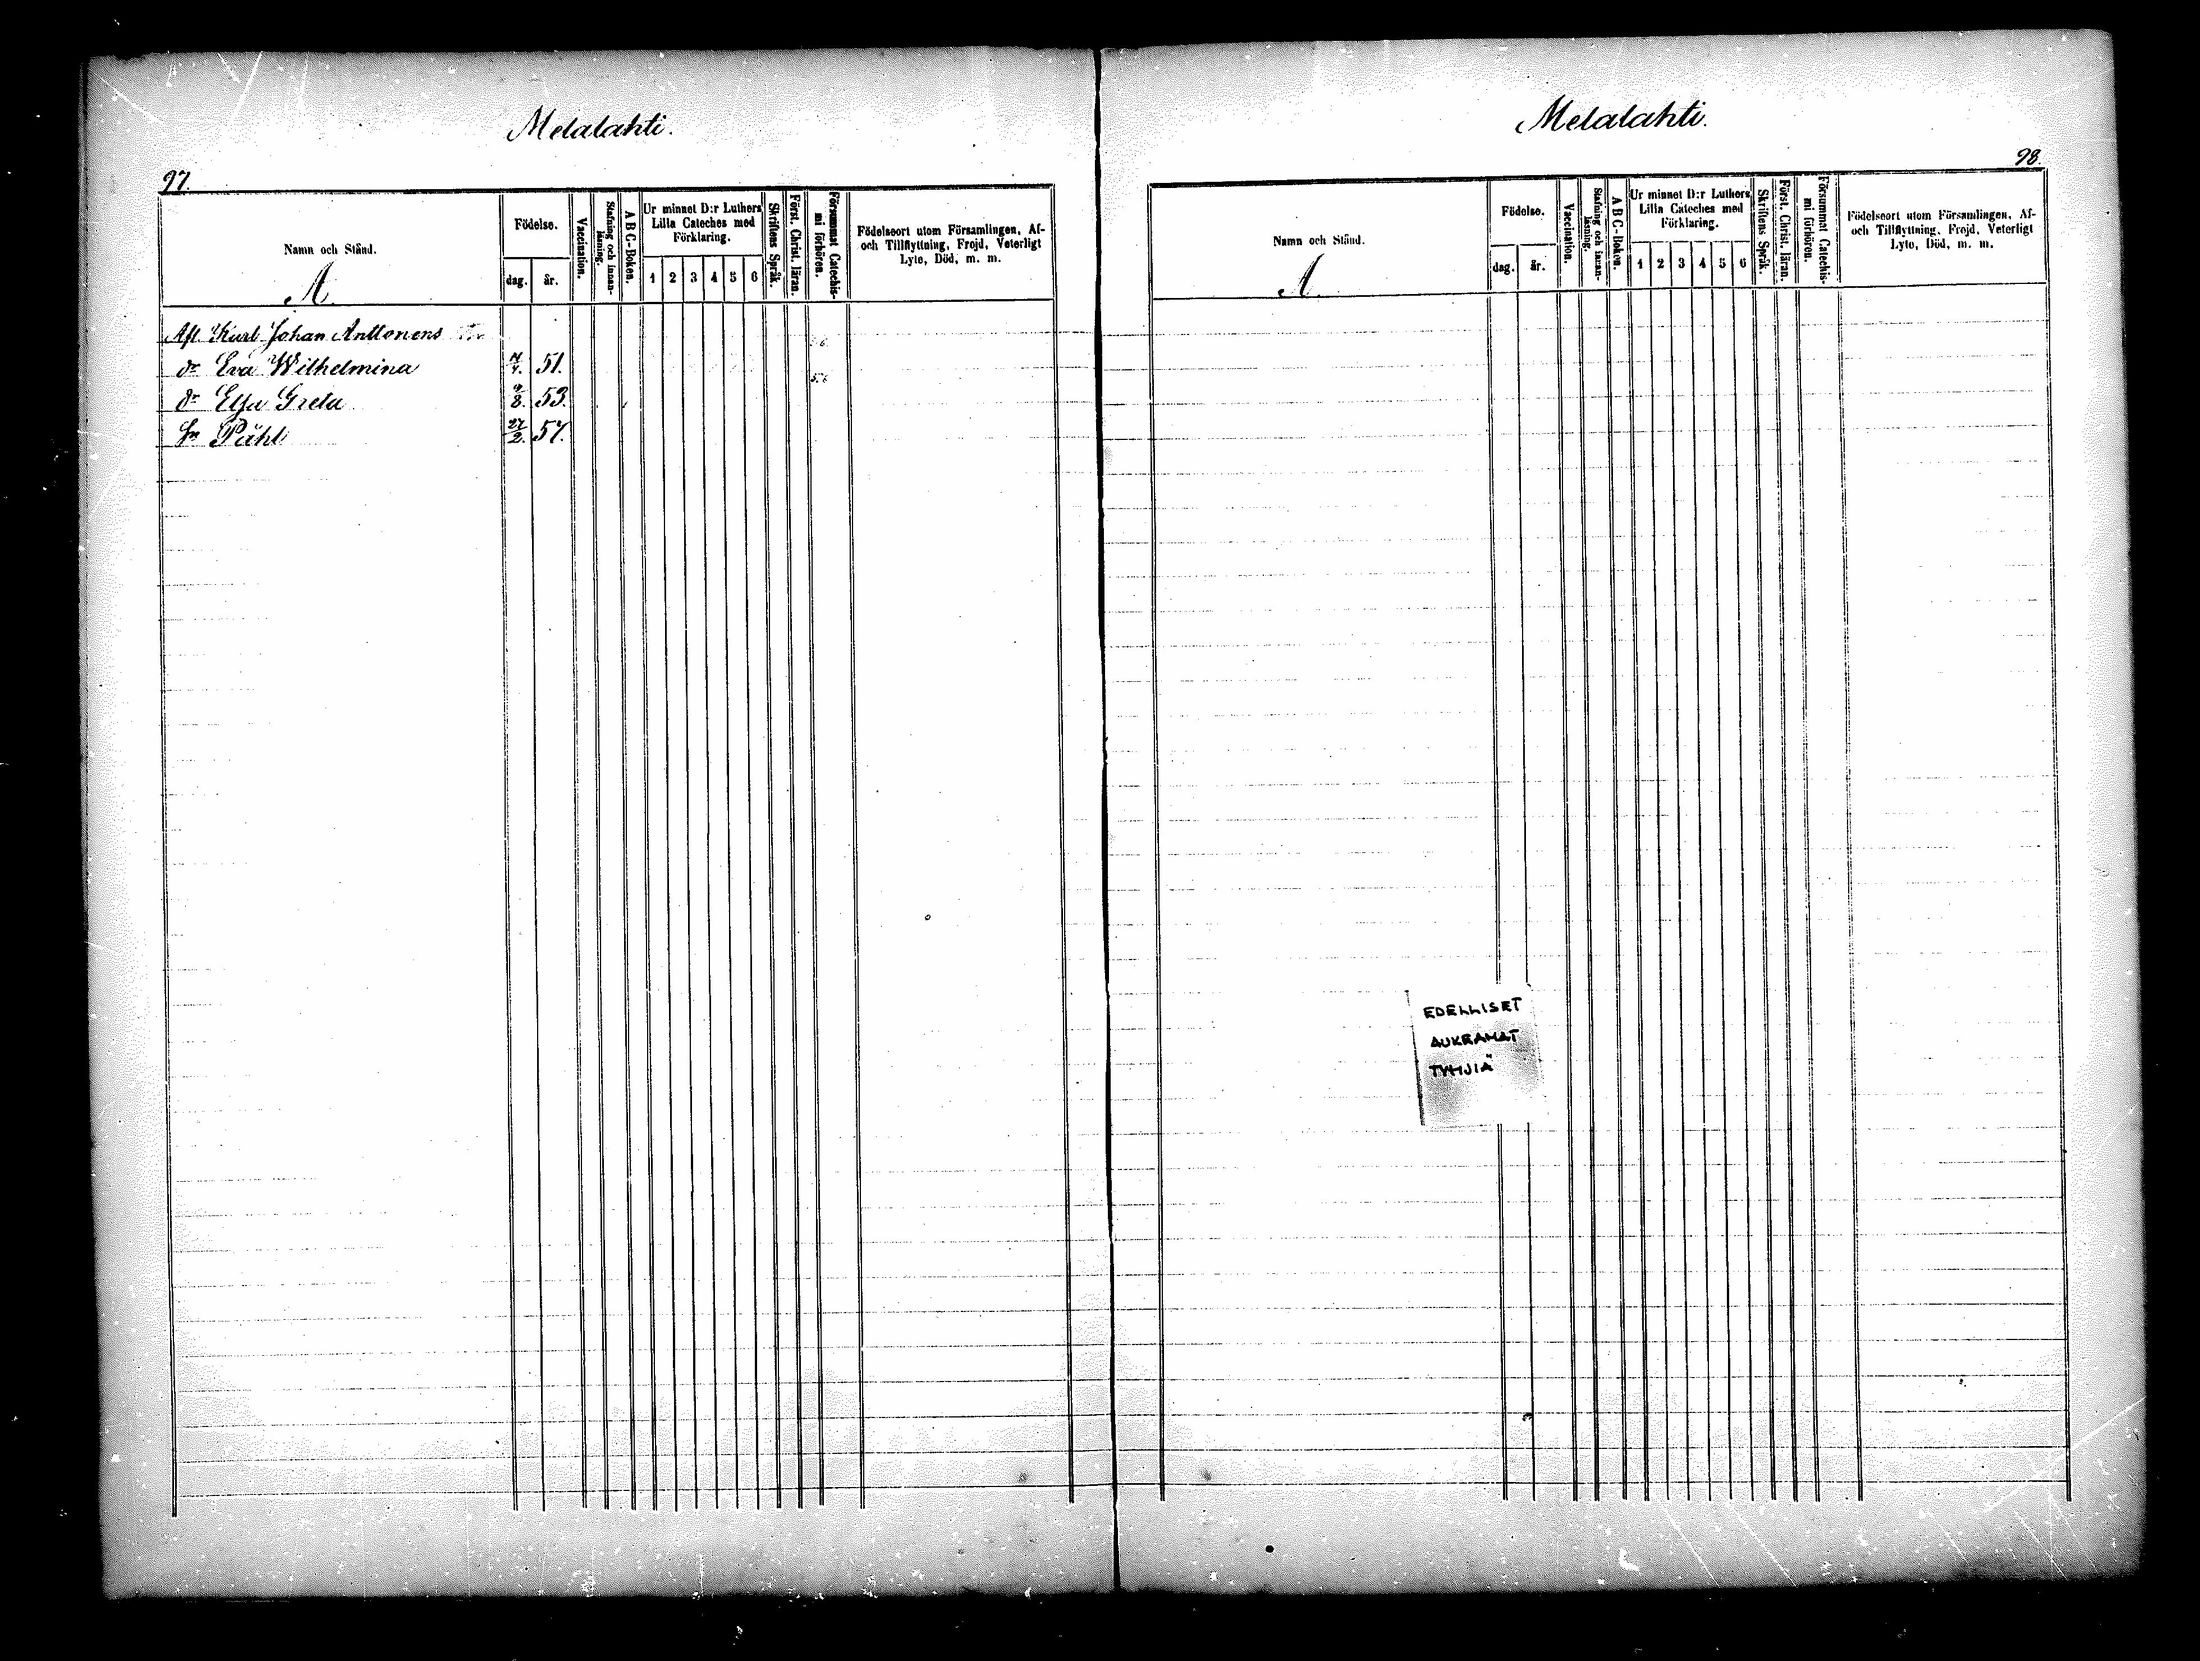 Melalahti.
97.
Namn och Stånd.
A.
Födelse.
dag.
år.
Vaccination.
Stafning och innan-
läsning.
A B C-Boken.
Ur minnet D:r Luthers
Lilla Cateches med
Förklaring.
1 2 3 4 5 6
Skriftens Språk.
Först. Christ. läran.
Försummat Catechis-
mi förhören.
Födelseort utom Församlingen, Af-
och Tillflyttning, Frejd, Veterligt
Lyte, Död, m. m.
Afl. Karl Johan Anttonens
dr Eva Wilhelmina 51.
dr Elsa Greta 53.
sn Påhl 27/2. 57.
Melalahti.
98.
Namn och Stånd.
A.
Födelse.
dag.
år.
Vaccination.
Stafning och innan-
läsning.
A B C-Boken.
Ur minnet D:r Luthers
Lilla Cateches med
Förklaring.
1 2 3 4 5 6
Skriftens Språk.
Först. Christ. läran.
Försummat Catechis-
mi förhören.
Födelseort utom Församlingen, Af-
och Tillflyttning, Frejd, Veterligt
Lyte, Död, m. m.
EDELLISET
AUKEAMAT
TYHJIÄ